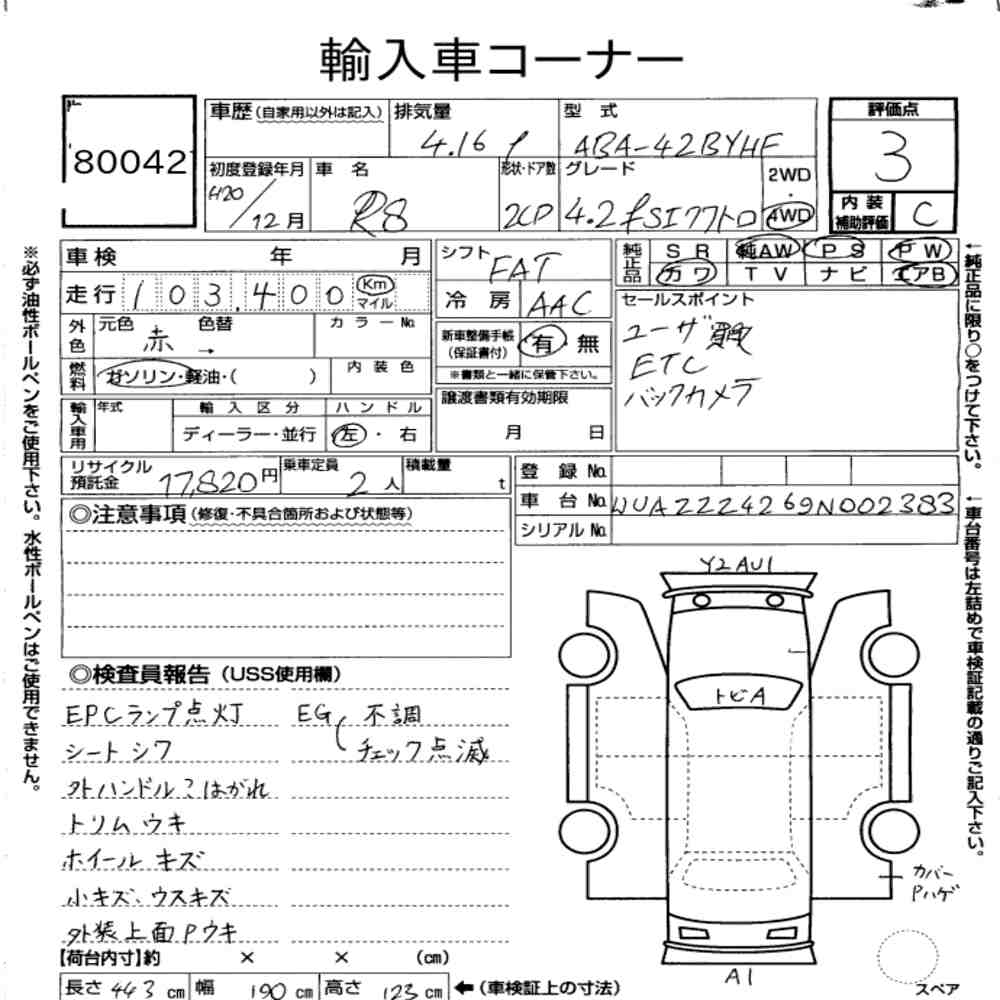 輸入車コーナー
80042
車歴(自家用以外は記入) 排気量 4.16 ℓ 型式 ABA-42BYHF
評価点 3
初度登録年月 H20/12月 車名 R8 形状・ドア数 2CP グレード 4.2FSIクワトロ 2WD・4WD
内装補助評価 C
車検 年 月
走行 103,400 Km マイル
シフト FAT
冷房 AAC
純正品 SR 純AW PS PW
カワ TV ナビ エアB
外色 元色 赤 → 色替 カラーNo.
燃料 ガソリン・軽油・( ) 内装色
新車整備手帳(保証書付) 有 無
※書類と一緒に保管下さい。
セールスポイント
ユーザー買取
ETC
バックカメラ
輸入車用 年式 輸入区分 ディーラー・並行 ハンドル 左・右
譲渡書類有効期限 月 日
リサイクル預託金 17,820円 乗車定員 2人 積載量 t
登録No.
車台No. WUAZZZ4269N002383
シリアルNo.
◎注意事項(修復・不具合箇所および状態等)
◎検査員報告(USS使用欄)
EPCランプ点灯 EG 不調
シートシワ チェック点滅
外ハンドル はがれ
トリムウキ
ホイールキズ
小キズ、ウスキズ
外装上面Pウキ
Y2 AU1
トビA
カバー
Pハゲ
A1
スペア
【荷台内寸】約 × × (cm)
長さ 443 cm 幅 190 cm 高さ 123 cm ←(車検証上の寸法)
※必ず油性ボールペンをご使用下さい。水性ボールペンはご使用できません。
←純正品に限り○をつけて下さい。
←車台番号は左詰めで車検証記載の通りご記入下さい。